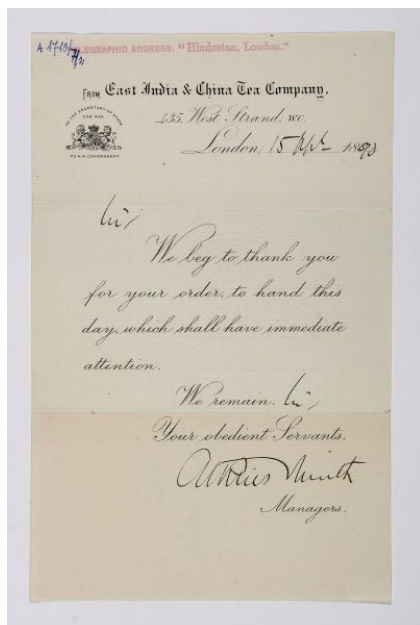 A 1713/
TELEGRAPHIC ADDRESS: "Hindostan, London."
FROM East India & China Tea Company,
435, West Strand, W.C.
TO THE SECRETARY OF STATE
FOR WAR
TO H.M. GOVERNMENT.
London, 15 Apl 1890
Sir,
We beg to thank you
for your order, to hand this
day, which shall have immediate
attention.
We remain, Sir,
Your obedient Servants,
Managers.